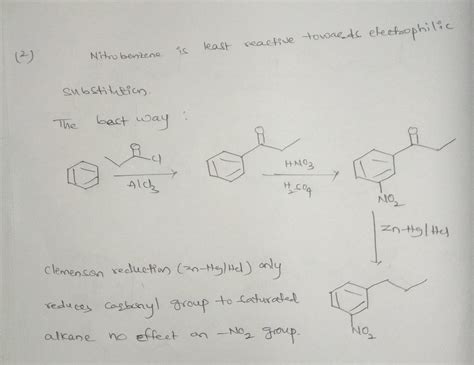 (2) Nitrobenzene is least reactive towards electrophilic
substitution.
The best way :
O
Cl
AlCl3
O
HNO3
H2SO4
O
NO2
Zn-Hg/HCl
Clemenson reduction (Zn-Hg/HCl) only
reduces carbonyl group to saturated
alkane no effect on -NO2 group.
NO2